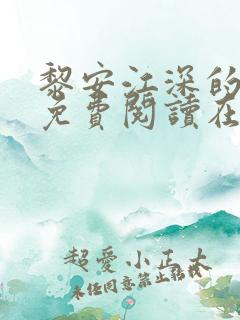 黎安江深的
免費閱讀在
超愛小正太
未任同意禁止轉載